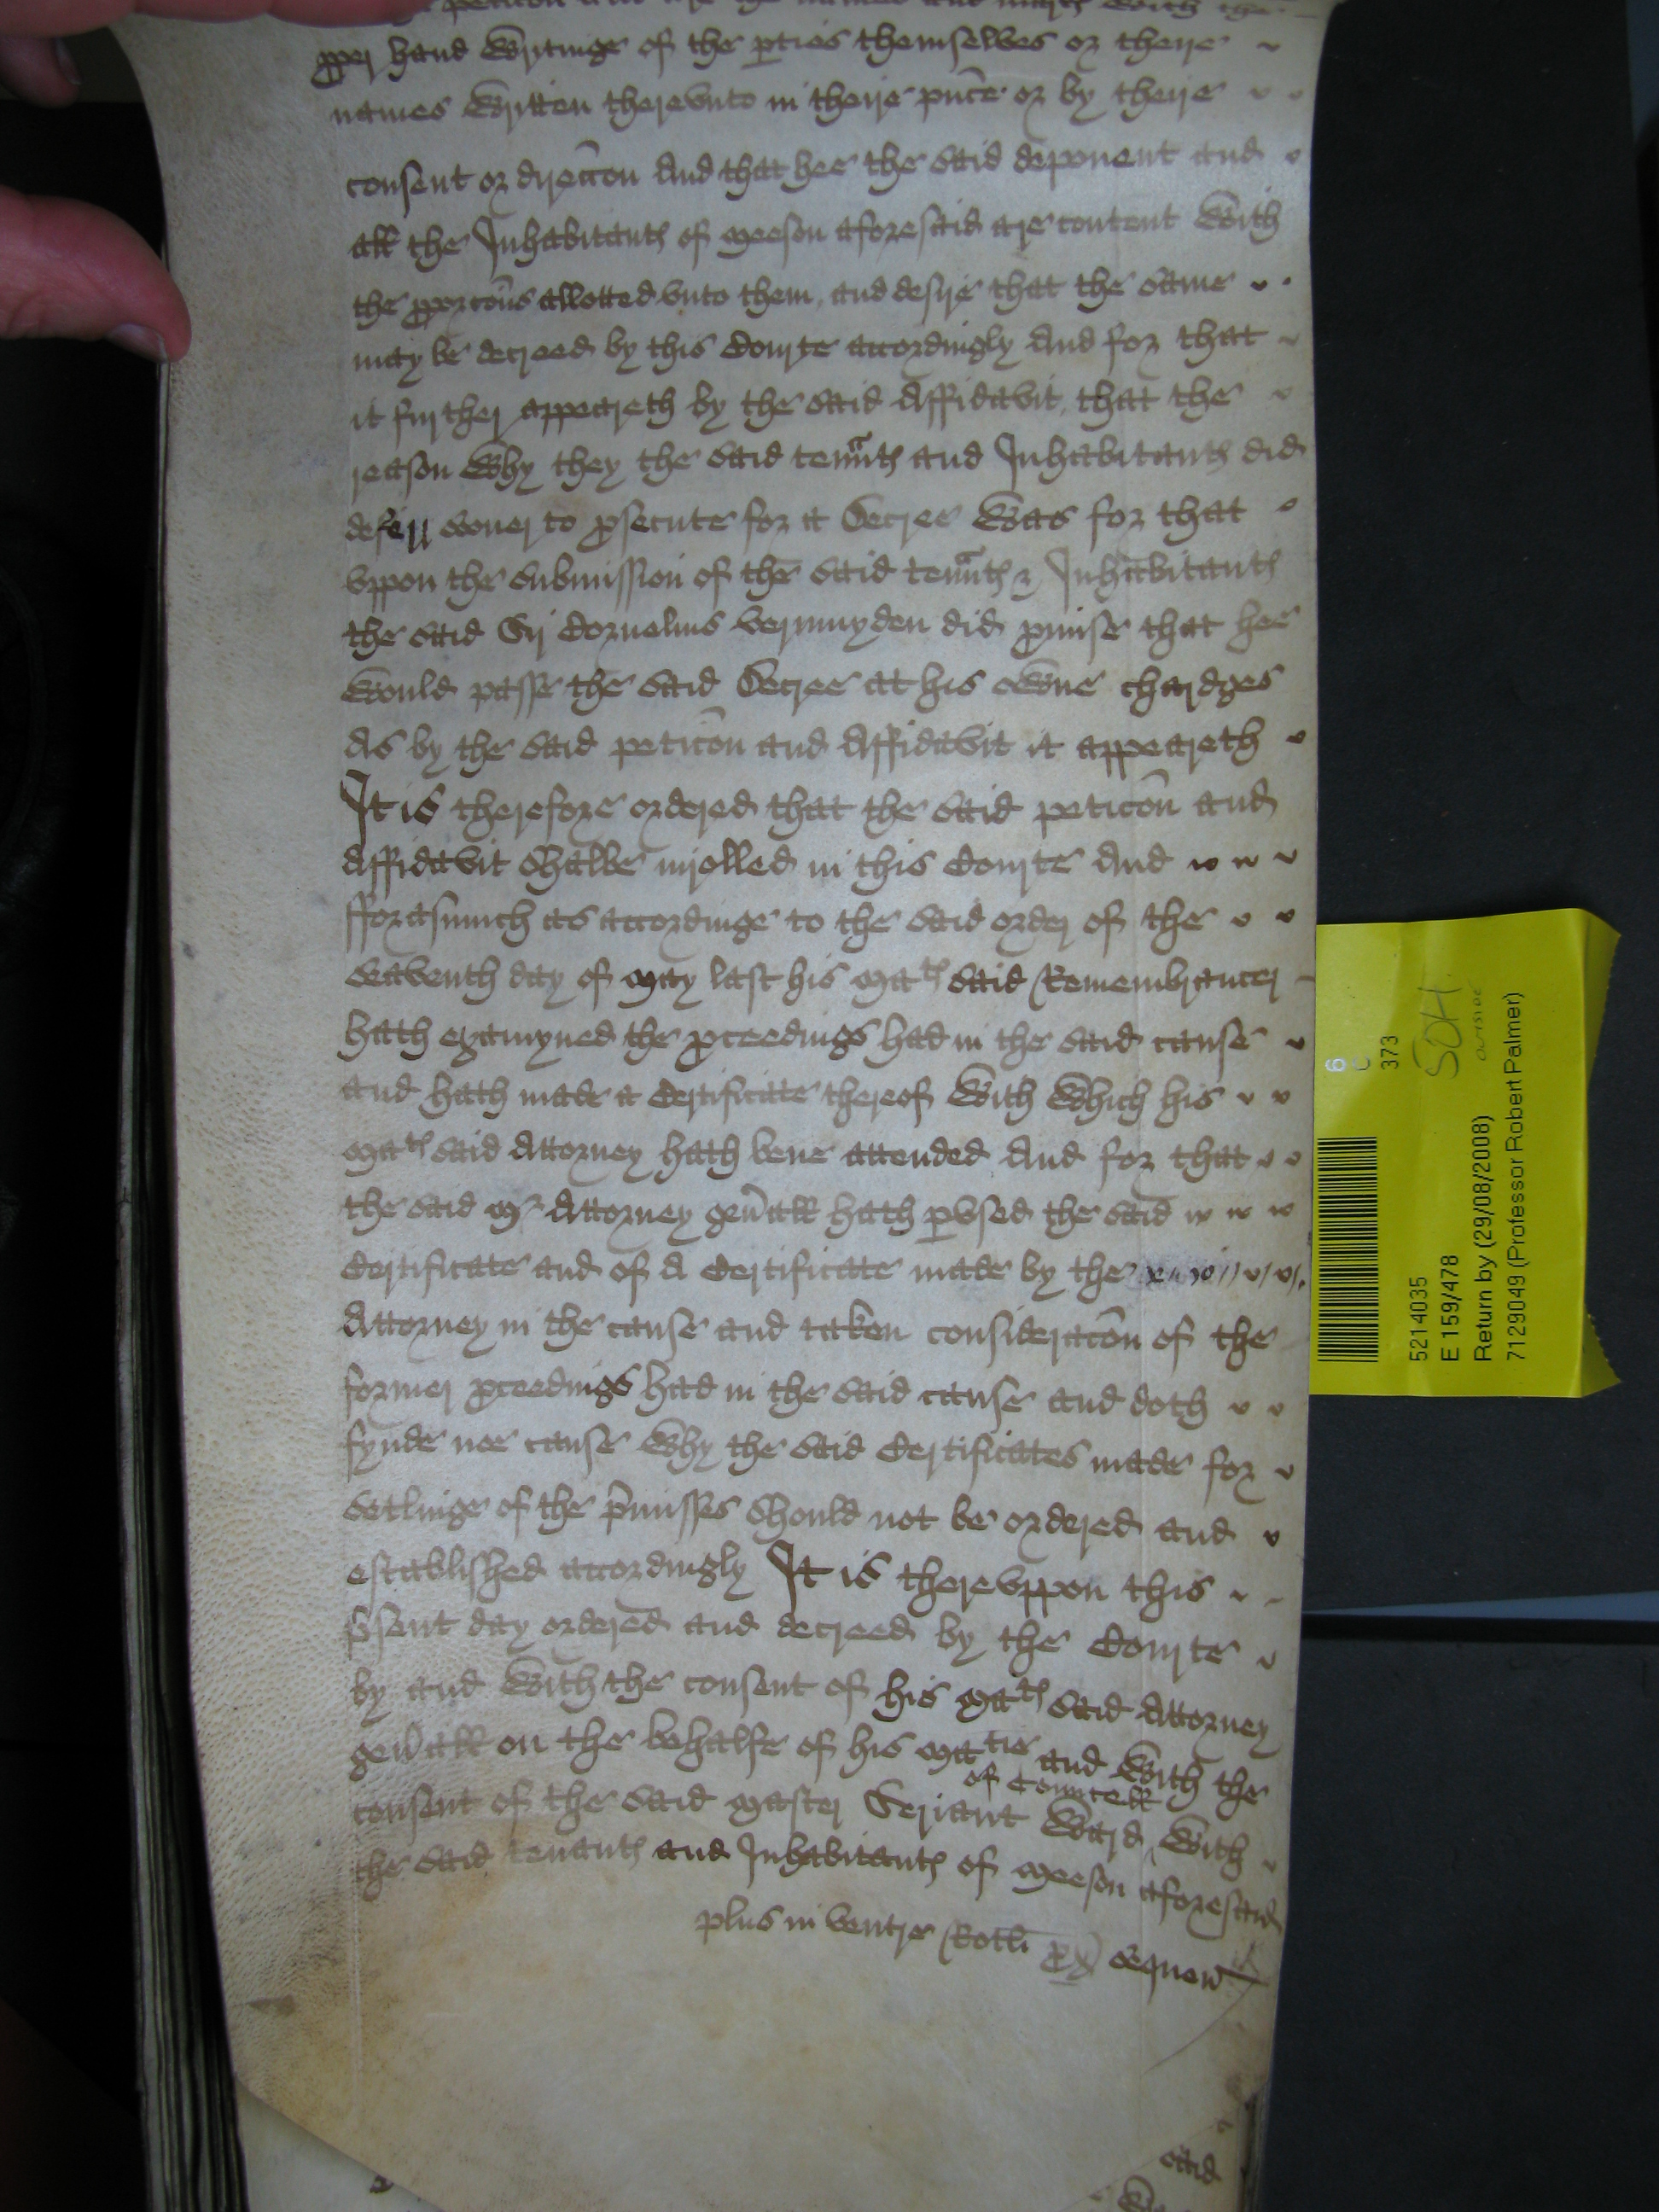 pper hand Wrytinge of the pties themselves or theire
names Written therevnto in theire pnce or by theire
consent or direccon And that hee the said deponent and
all the Inhabitants of Meeson aforesaid are content With
the pporcons allotted vnto them, and desire that the same
may be decreed by this Courte accordingly And for that
it further appeareth by the said Affidavit, that the
reason Why they the said tennts and Inhabitants did
deferr sooner to psecute for a Decree Was for that
vppon the Submission of the said tennts & Inhabitants
the said Sr Cornelius Vermuyden did pmise that hee
Would passe the said Decree at his oWne chardges
As by the said peticon and Affidavit it appeareth
It is therefore ordered that the said peticon and
Affidavit shalbe inrolled in this Courte And
fforasmuch as accordinge to the said order of the
seaventh day of May last his Mats said Remembrancer
hath examyned the pceedings had in the said cause
and hath made a Certificate thereof With Which his
Mats said Attorney hath bene attended And for that
the said Mr Attorney genall hath pvsed the said
Certificate and of A Certificate made by the
Attorney in the cause and taken consideracon of the
former pceedings had in the said cause and doth
fynde noe cause Why the said Certificates made for
setlinge of the pmisses should not be ordered and
established accordingly It is therevppon this
psent day ordered and decreed by the Courte
by and With the consent of his Mats said Attorney
genall on the behalfe of his Matie and With the
consent of the said Master Seriant Ward of Councell With
the said tenants and Inhabitants of Meeson aforesaid
plus in ventre Rotli sequen
said
6
C
373
SOH
outsize
5214035
E 159/478
Return by (29/08/2008)
7129049 (Professor Robert Palmer)